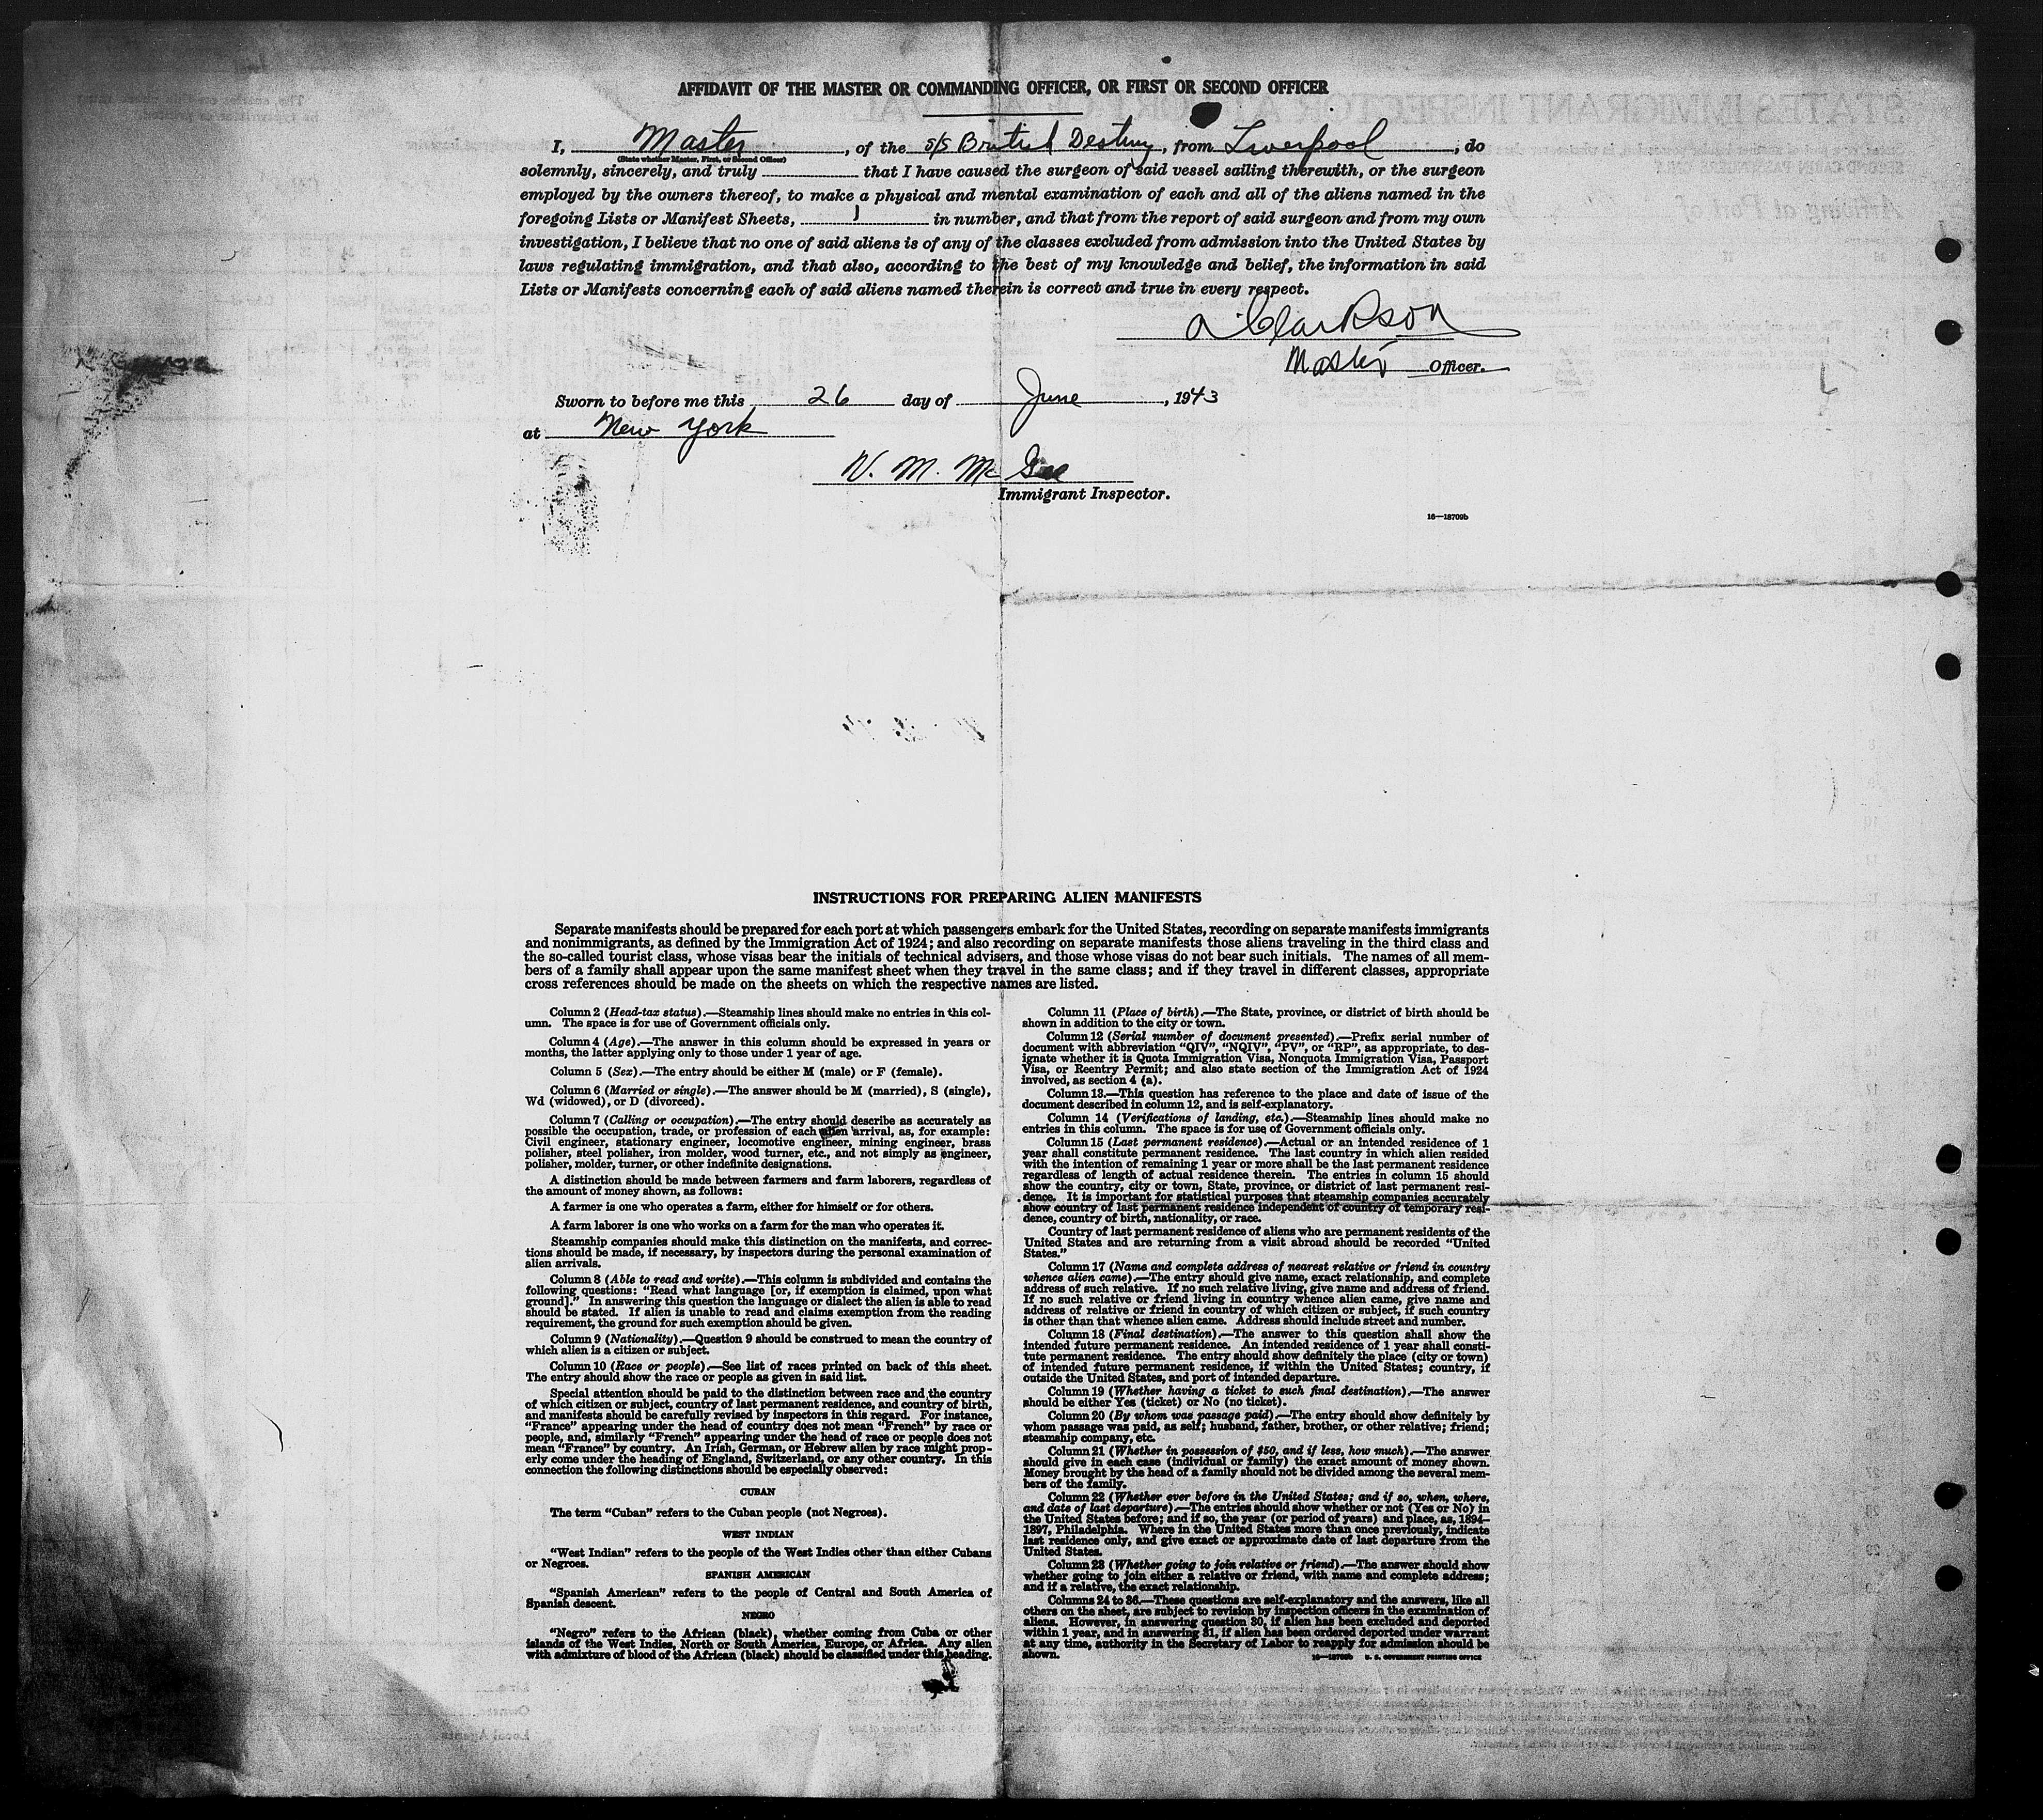 AFFIDAVIT OF THE MASTER OR COMMANDING OFFICER, OR FIRST OR SECOND OFFICER
I, Master, of the S/S British Destiny, from Liverpool, do
(State whether Master, First, or Second Officer)
solemnly, sincerely, and truly that I have caused the surgeon of said vessel sailing therewith, or the surgeon
employed by the owners thereof, to make a physical and mental examination of each and all of the aliens named in the
foregoing Lists or Manifest Sheets, 1 in number, and that from the report of said surgeon and from my own
investigation, I believe that no one of said aliens is of any of the classes excluded from admission into the United States by
laws regulating immigration, and that also, according to the best of my knowledge and belief, the information in said
Lists or Manifests concerning each of said aliens named therein is correct and true in every respect.
A Clarkson
Master Officer.
Sworn to before me this 26 day of June, 1943
at New York
W. M. McGee
Immigrant Inspector.
16—18709b
INSTRUCTIONS FOR PREPARING ALIEN MANIFESTS
Separate manifests should be prepared for each port at which passengers embark for the United States, recording on separate manifests immigrants
and nonimmigrants, as defined by the Immigration Act of 1924; and also recording on separate manifests those aliens traveling in the third class and
the so-called tourist class, whose visas bear the initials of technical advisers, and those whose visas do not bear such initials. The names of all mem-
bers of a family shall appear upon the same manifest sheet when they travel in the same class; and if they travel in different classes, appropriate
cross references should be made on the sheets on which the respective names are listed.
Column 2 (Head-tax status).—Steamship lines should make no entries in this col-
umn. The space is for use of Government officials only.
Column 4 (Age).—The answer in this column should be expressed in years or
months, the latter applying only to those under 1 year of age.
Column 5 (Sex).—The entry should be either M (male) or F (female).
Column 6 (Married or single).—The answer should be M (married), S (single),
Wd (widowed), or D (divorced).
Column 7 (Calling or occupation).—The entry should describe as accurately as
possible the occupation, trade, or profession of each alien arrival, as, for example:
Civil engineer, stationary engineer, locomotive engineer, mining engineer, brass
polisher, steel polisher, iron molder, wood turner, etc., and not simply as engineer,
polisher, molder, turner, or other indefinite designations.
A distinction should be made between farmers and farm laborers, regardless of
the amount of money shown, as follows:
A farmer is one who operates a farm, either for himself or for others.
A farm laborer is one who works on a farm for the man who operates it.
Steamship companies should make this distinction on the manifests, and correc-
tions should be made, if necessary, by inspectors during the personal examination of
alien arrivals.
Column 8 (Able to read and write).—This column is subdivided and contains the
following questions: "Read what language [or, if exemption is claimed, upon what
ground]." In answering this question the language or dialect the alien is able to read
should be stated. If alien is unable to read and claims exemption from the reading
requirement, the ground for such exemption should be given.
Column 9 (Nationality).—Question 9 should be construed to mean the country of
which alien is a citizen or subject.
Column 10 (Race or people).—See list of races printed on back of this sheet.
The entry should show the race or people as given in said list.
Special attention should be paid to the distinction between race and the country
of which citizen or subject, country of last permanent residence, and country of birth,
and manifests should be carefully revised by inspectors in this regard. For instance,
"France" appearing under the head of country does not mean "French" by race or
people, and, similarly "French" appearing under the head of race or people does not
mean "France" by country. An Irish, German, or Hebrew alien by race might prop-
erly come under the heading of England, Switzerland, or any other country. In this
connection the following distinctions should be especially observed:
CUBAN
The term "Cuban" refers to the Cuban people (not Negroes).
WEST INDIAN
"West Indian" refers to the people of the West Indies other than either Cubans
or Negroes.
SPANISH AMERICAN
"Spanish American" refers to the people of Central and South America of
Spanish descent.
NEGRO
"Negro" refers to the African (black), whether coming from Cuba or other
islands of the West Indies, North or South America, Europe, or Africa. Any alien
with admixture of blood of the African (black) should be classified under this heading.
Column 11 (Place of birth).—The State, province, or district of birth should be
shown in addition to the city or town.
Column 12 (Serial number of document presented).—Prefix serial number of
document with abbreviation "QIV", "NQIV", "PV", or "RP", as appropriate, to des-
ignate whether it is Quota Immigration Visa, Nonquota Immigration Visa, Passport
Visa, or Reentry Permit; and also state section of the Immigration Act of 1924
involved, as section 4 (a).
Column 13.—This question has reference to the place and date of issue of the
document described in column 12, and is self-explanatory.
Column 14 (Verifications of landing, etc.).—Steamship lines should make no
entries in this column. The space is for use of Government officials only.
Column 15 (Last permanent residence).—Actual or an intended residence of 1
year shall constitute permanent residence. The last country in which alien resided
with the intention of remaining 1 year or more shall be the last permanent residence
regardless of length of actual residence therein. The entries in column 15 should
show the country, city or town, State, province, or district of last permanent resi-
dence. It is important for statistical purposes that steamship companies accurately
show country of last permanent residence independent of country of temporary resi-
dence, country of birth, nationality, or race.
Country of last permanent residence of aliens who are permanent residents of the
United States and are returning from a visit abroad should be recorded "United
States."
Column 17 (Name and complete address of nearest relative or friend in country
whence alien came).—The entry should give name, exact relationship, and complete
address of such relative. If no such relative living, give name and address of friend.
If no such relative or friend living in country whence alien came, give name and
address of relative or friend in country of which citizen or subject, if such country
is other than that whence alien came. Address should include street and number.
Column 18 (Final destination).—The answer to this question shall show the
intended future permanent residence. An intended residence of 1 year shall consti-
tute permanent residence. The entry should show definitely the place (city or town)
of intended future permanent residence, if within the United States; country, if
outside the United States, and port of intended departure.
Column 19 (Whether having a ticket to such final destination).—The answer
should be either Yes (ticket) or No (no ticket).
Column 20 (By whom was passage paid).—The entry should show definitely by
whom passage was paid, as self; husband, father, brother, or other relative; friend;
steamship company, etc.
Column 21 (Whether in possession of $50, and if less, how much).—The answer
should give in each case (individual or family) the exact amount of money shown.
Money brought by the head of a family should not be divided among the several mem-
bers of the family.
Column 22 (Whether ever before in the United States; and if so, when, where,
and date of last departure).—The entries should show whether or not (Yes or No) in
the United States before; and if so, the year (or period of years) and place, as, 1894–
1897, Philadelphia. Where in the United States more than once previously, indicate
last residence only, and give exact or approximate date of last departure from the
United States.
Column 23 (Whether going to join relative or friend).—The answer should show
whether going to join either a relative or friend, with name and complete address;
and if a relative, the exact relationship.
Columns 24 to 36.—These questions are self-explanatory and the answers, like all
others on the sheet, are subject to revision by inspection officers in the examination of
aliens. However, in answering question 30, if alien has been excluded and deported
within 1 year, and in answering 31, if alien has been ordered deported under warrant
at any time, authority in the Secretary of Labor to reapply for admission should be
shown.
U. S. GOVERNMENT PRINTING OFFICE